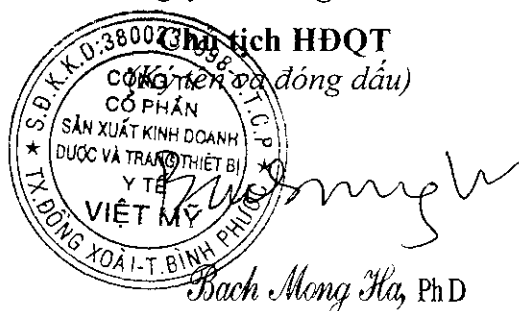 Chủ tịch HĐQT
(Ký tên và đóng dấu)
CÔNG TY
CỔ PHẦN
SẢN XUẤT KINH DOANH
DƯỢC VÀ TRANG THIẾT BỊ
Y TẾ
VIỆT MỸ
TX.ĐỒNG XOÀI-T.BÌNH PHƯỚC
Bach Mong Ha, PhD